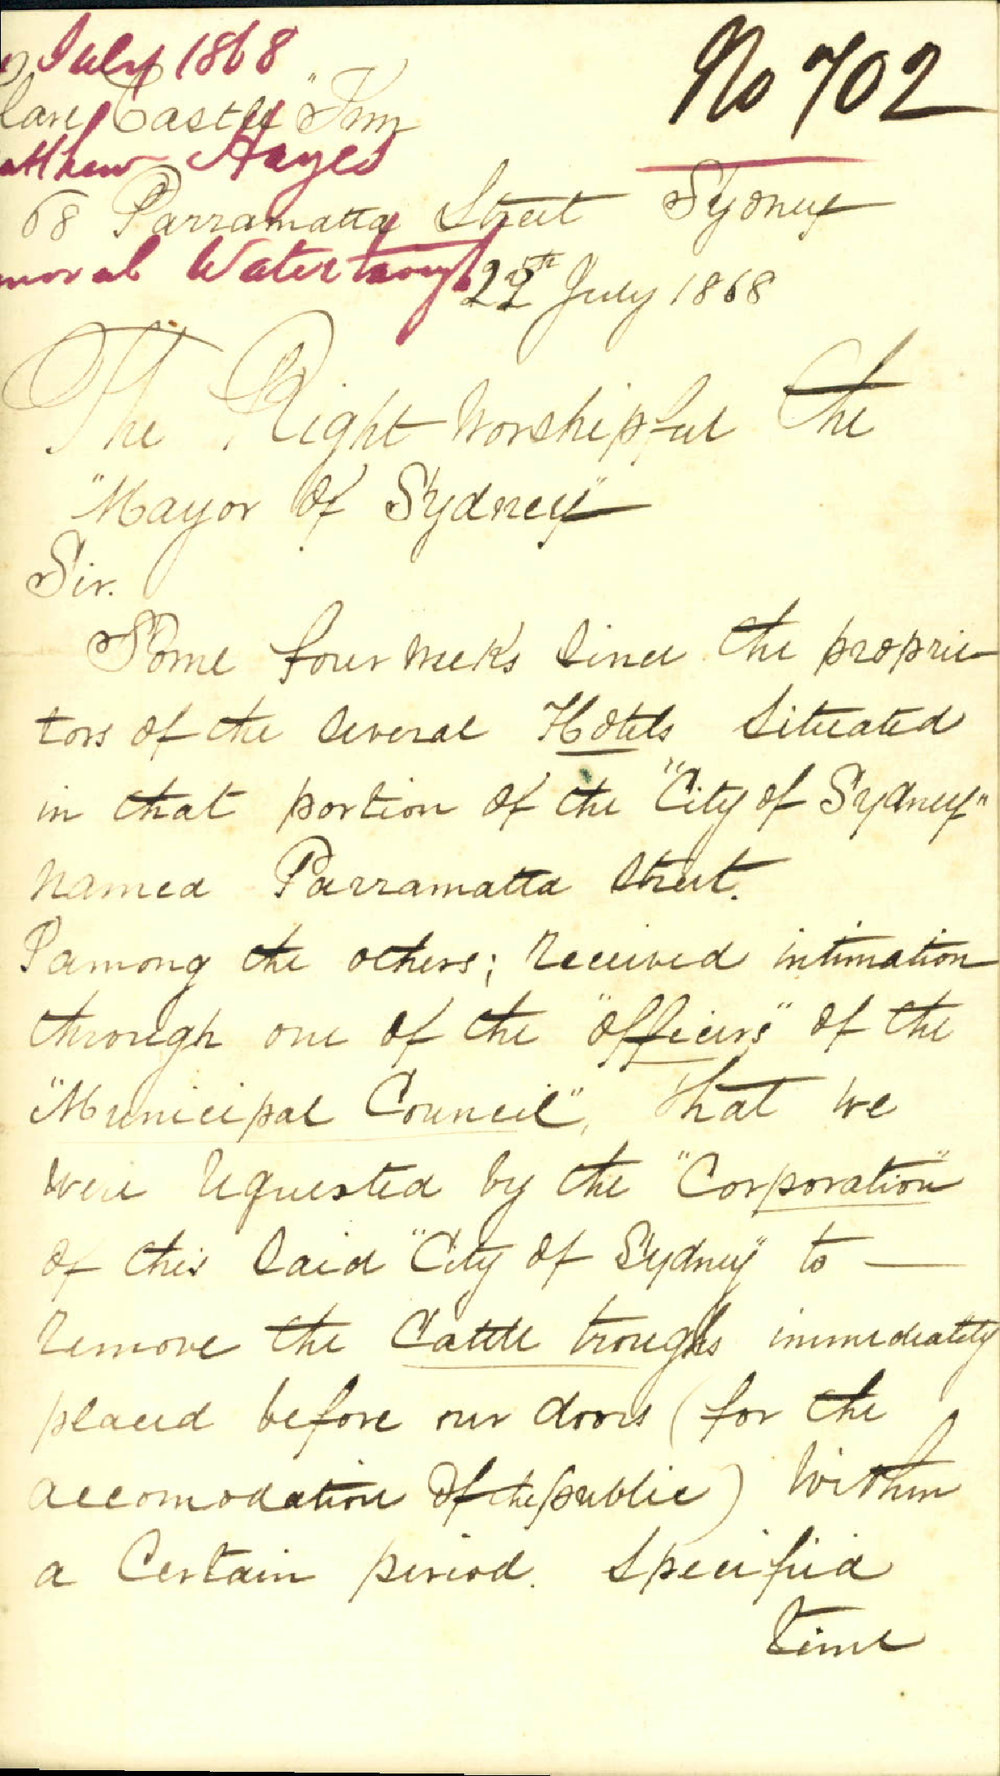 July 1868
No 702
Clare Castle" Inn
Matthew Hayes
68 Parramatta Street Sydney
Removal Watertrough
22nd July 1868
The Right Worshipful the
"Mayor of Sydney"
Sir.
Some four weeks since the proprie-
tors of the several Hotels situated
in that portion of the "City of Sydney"
named Parramatta Street.
I among the others; received intimation
through one of the "officers" of the
"Municipal Council", that we
were requested by the "Corporation"
of this said "City of Sydney" to —
remove the Cattle troughs immediately
placed before our doors (for the
accomodation of the public) within
a certain period. specified
time